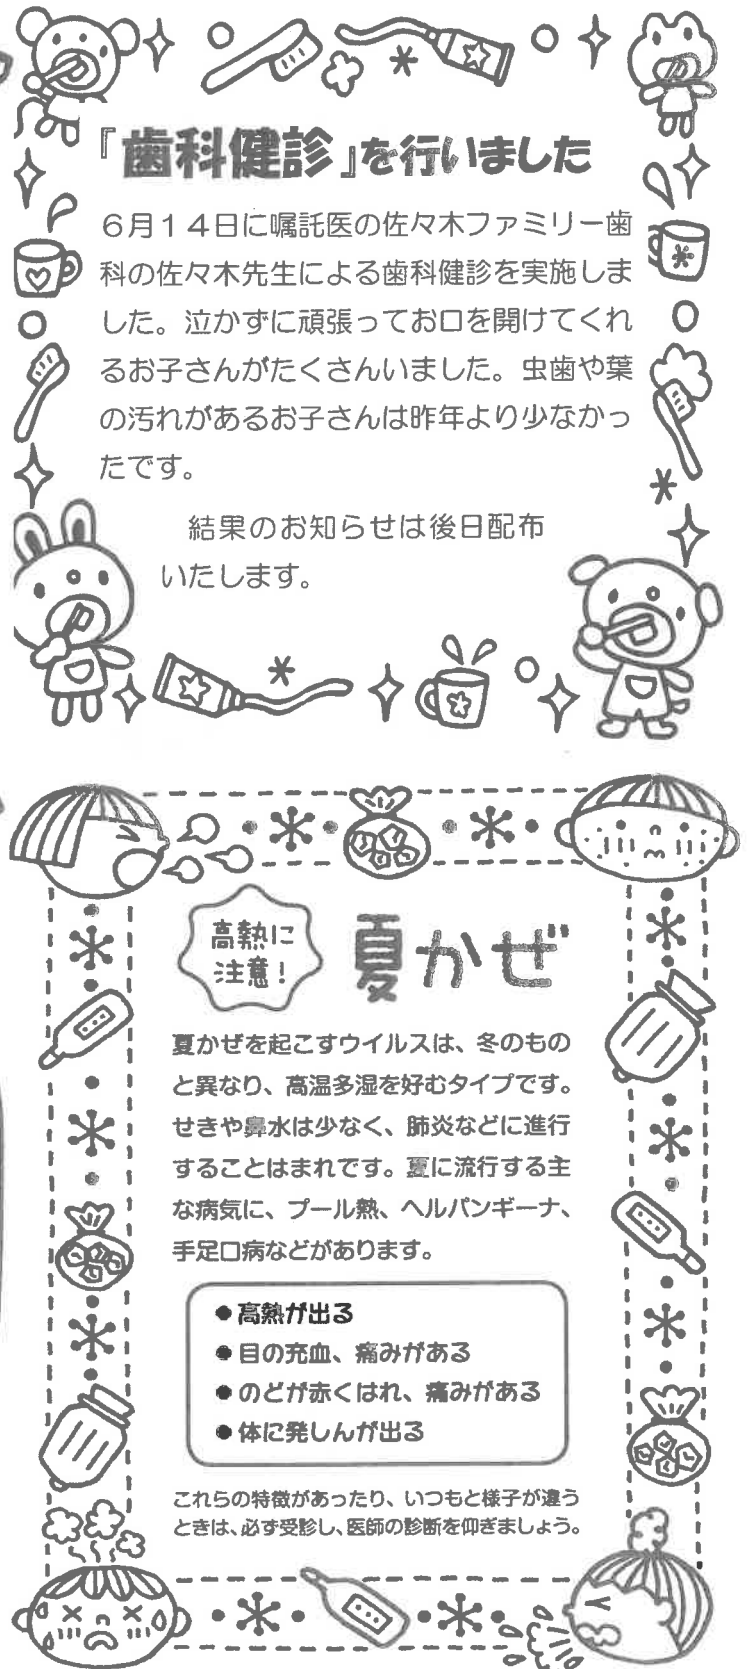 『歯科健診』を行いました
６月１４日に嘱託医の佐々木ファミリー歯
科の佐々木先生による歯科健診を実施しま
した。泣かずに頑張ってお口を開けてくれ
るお子さんがたくさんいました。虫歯や葉
の汚れがあるお子さんは昨年より少なかっ
たです。
結果のお知らせは後日配布
いたします。
高熱に
注意！
夏かぜ
夏かぜを起こすウイルスは、冬のもの
と異なり、高温多湿を好むタイプです。
せきや鼻水は少なく、肺炎などに進行
することはまれです。夏に流行する主
な病気に、プール熱、ヘルパンギーナ、
手足口病などがあります。
●高熱が出る
●目の充血、痛みがある
●のどが赤くはれ、痛みがある
●体に発しんが出る
これらの特徴があったり、いつもと様子が違う
ときは、必ず受診し、医師の診断を仰ぎましょう。